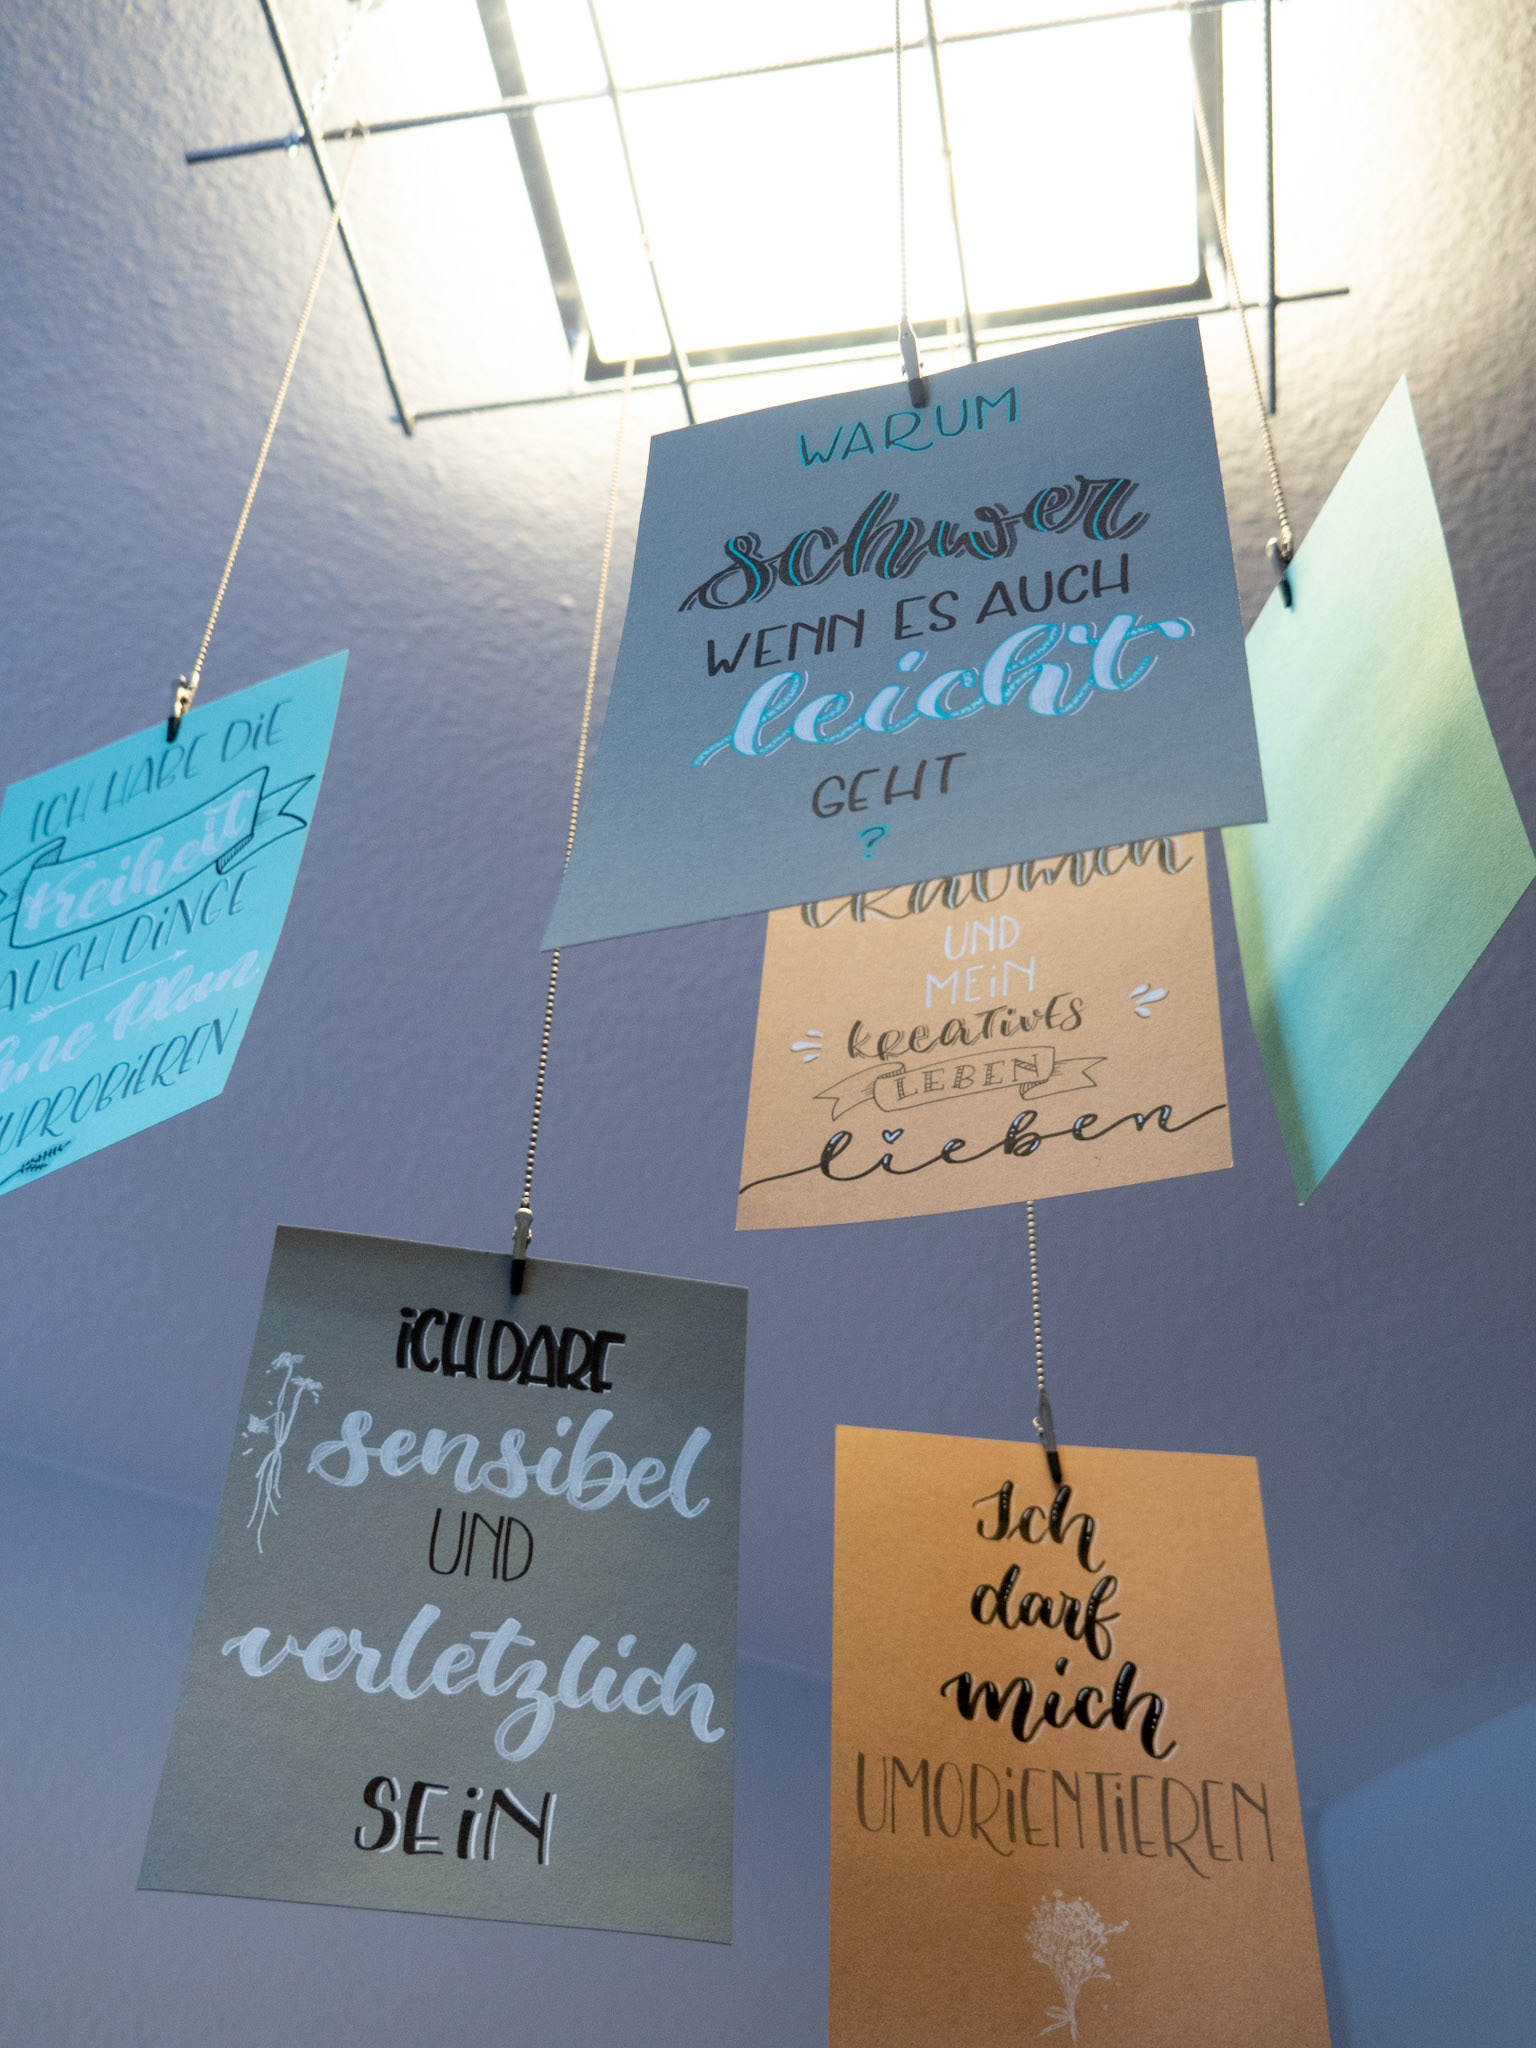 WARUM
schwer
WENN ES AUCH
leicht
GEHT
?
ICH HABE DIE
Freiheit
AUCH DINGE
ohne Plan
AUPROBIEREN
träumen
UND
MEIN
KREATIVES
LEBEN
lieben
ICH DARF
sensibel
UND
verletzlich
SEIN
Ich
darf
mich
UMORIENTIEREN